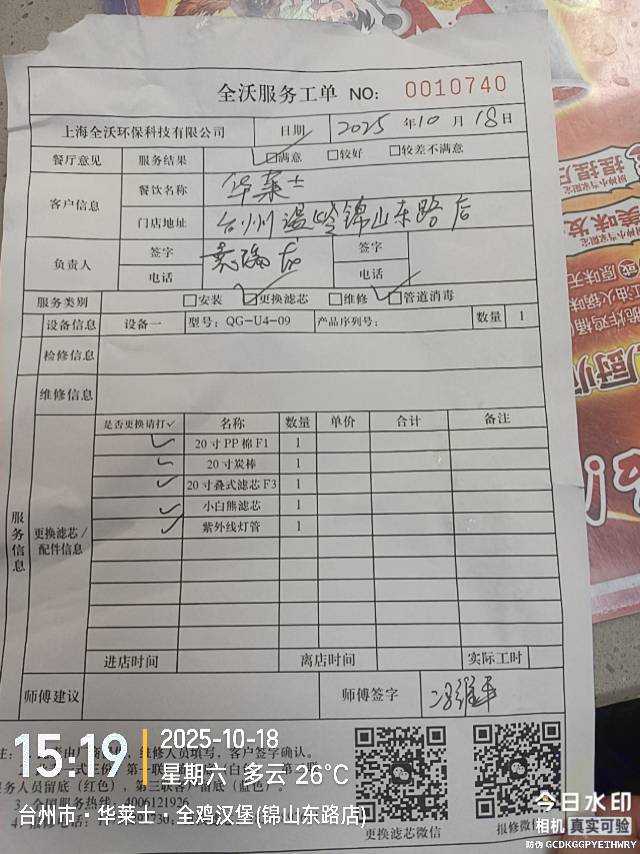 全沃服务工单 NO: 0010740
上海全沃环保科技有限公司 日期 2025 年 10 月 18 日
餐厅意见 服务结果 ☑满意 □较好 □较差不满意
客户信息 餐饮名称 华莱士
门店地址 台州温岭锦山东路店
负责人 签字 签字
电话 电话
服务类别 □安装 ☑更换滤芯 □维修 ☑管道消毒
设备信息 设备一 型号: QG-U4-09 产品序列号: 数量 1
检修信息
维修信息
服务信息
更换滤芯/配件信息
是否更换请打✓ 名称 数量 单价 合计 备注
✓ 20寸PP棉F1 1
✓ 20寸炭棒 1
✓ 20寸叠式滤芯F3 1
✓ 小白熊滤芯 1
✓ 紫外线灯管 1
进店时间 离店时间 实际工时
师傅建议 师傅签字 冯维平
维修人员填写,客户签字确认。
务人员留底(红色),第三联客户留底(蓝色)。
3、全国服务热线:4006121926
更换滤芯微信 报修微信
15:19
2025-10-18
星期六 多云 26°C
台州市·华莱士·全鸡汉堡(锦山东路店)
今日水印
相机 真实可验
防伪 GCDKGGPYETHWRY